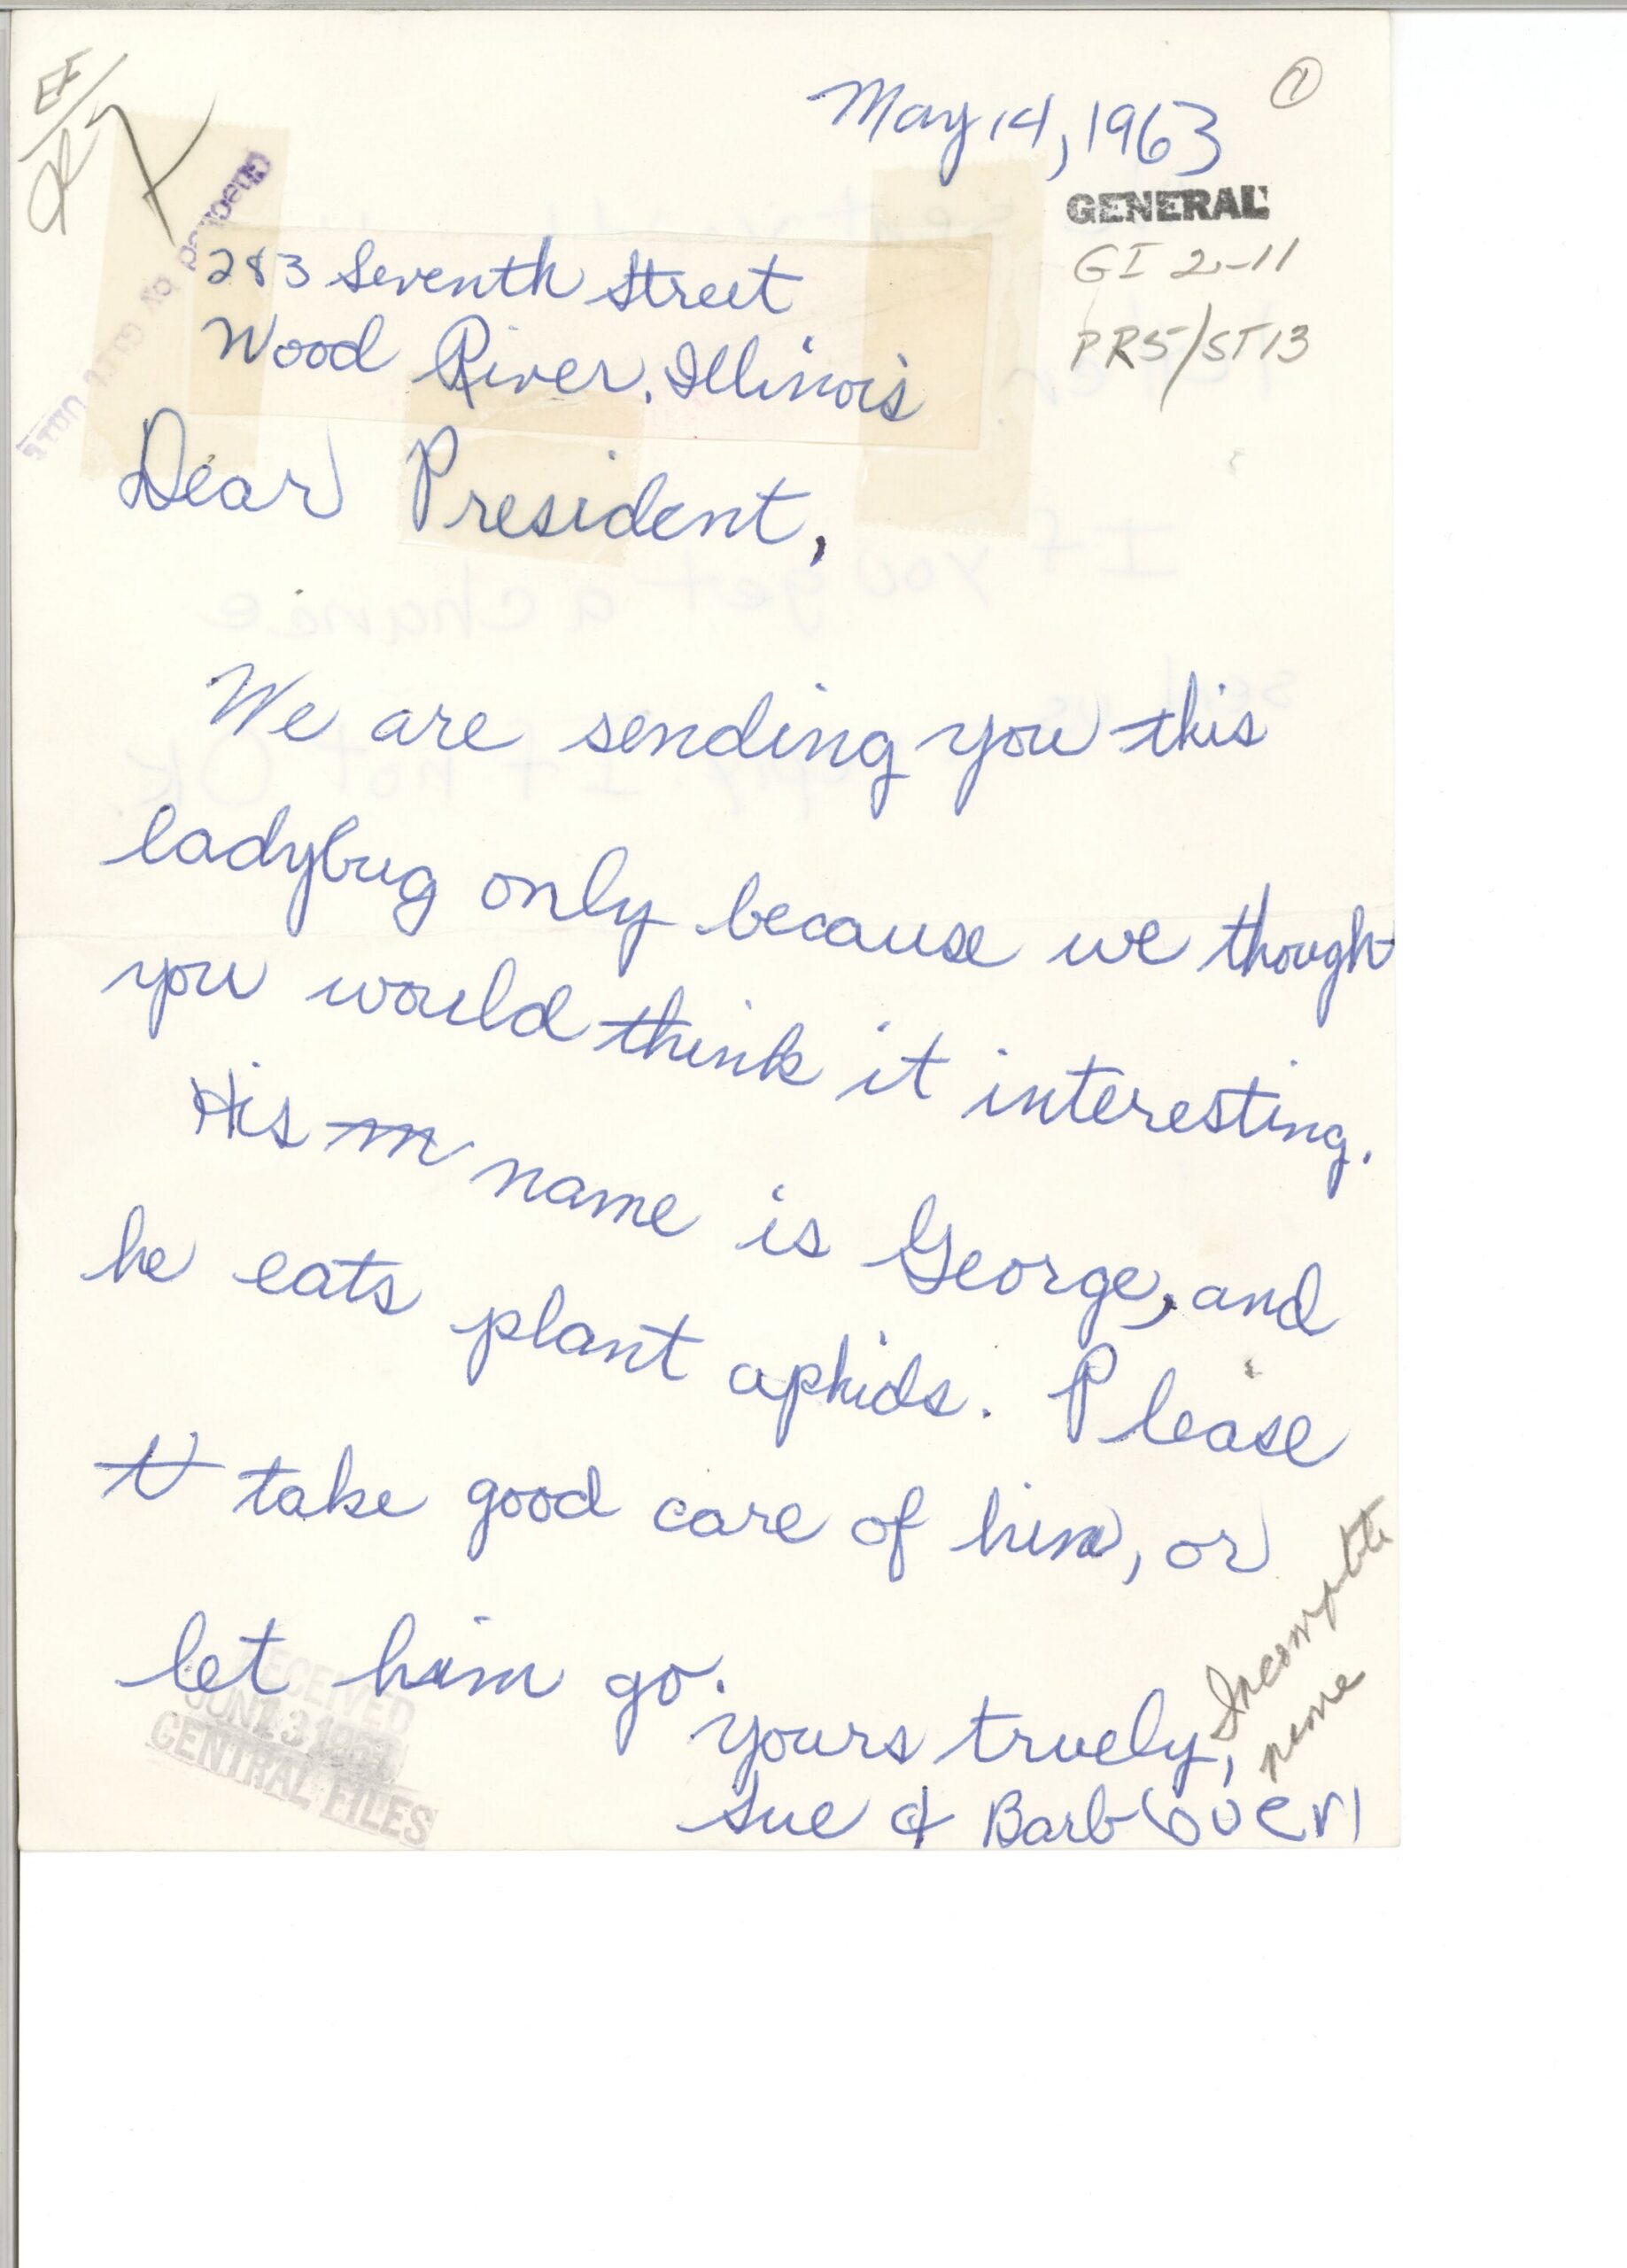 ①
May 14, 1963
GENERAL
GI 2-11
PR5/ST13
283 Seventh Street
Wood River, Illinois
Dear President,
We are sending you this
ladybug only because we though
you would think it interesting.
His m name is George, and
he eats plant aphids. Please
t take good care of him, or
let him go.
Yours truely,
Sue & Barb (over)
Incomplete
name
RECEIVED
JUN 13 1963
CENTRAL FILES